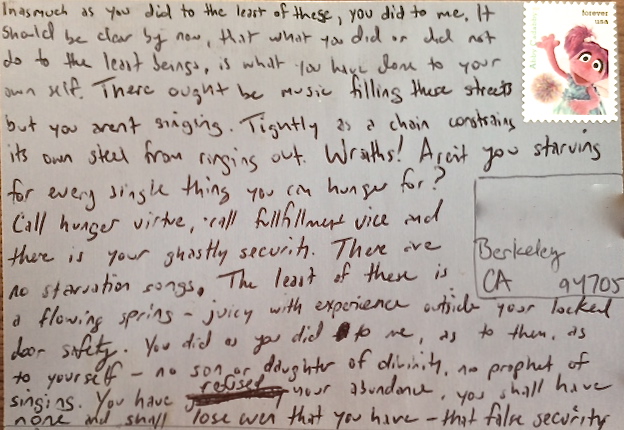 Inasmuch as you did to the least of these, you did to me. It
should be clear by now, that what you did or did not
do to the least beings, is what you have done to your
own self. There ought be music filling these streets
but you arent singing. Tightly as a chain constrains
its own steel from ringing out. Wraiths! Arent you starving
for every single thing you can hunger for?
Call hunger virtue, call fullfillment vice and
there is your ghastly security. There are
no starvation songs. The least of these is
a flowing spring - juicy with experience outside your locked
door safety. You did as you did to me, as to them, as
to yourself - no son or daughter of divinity, no prophet of
singing. You have refused your abundance, you shall have
none and shall lose even that you have - that false security
forever
usa
Berkeley
CA 94705